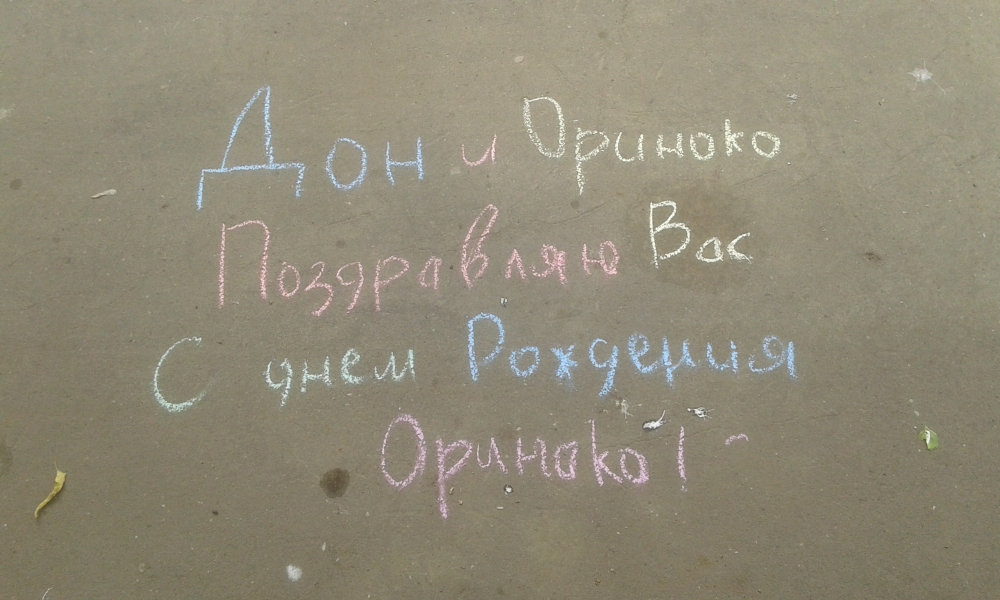 Дон и Ориноко
Поздравляю Вас
С днем Рождения
Ориноко!